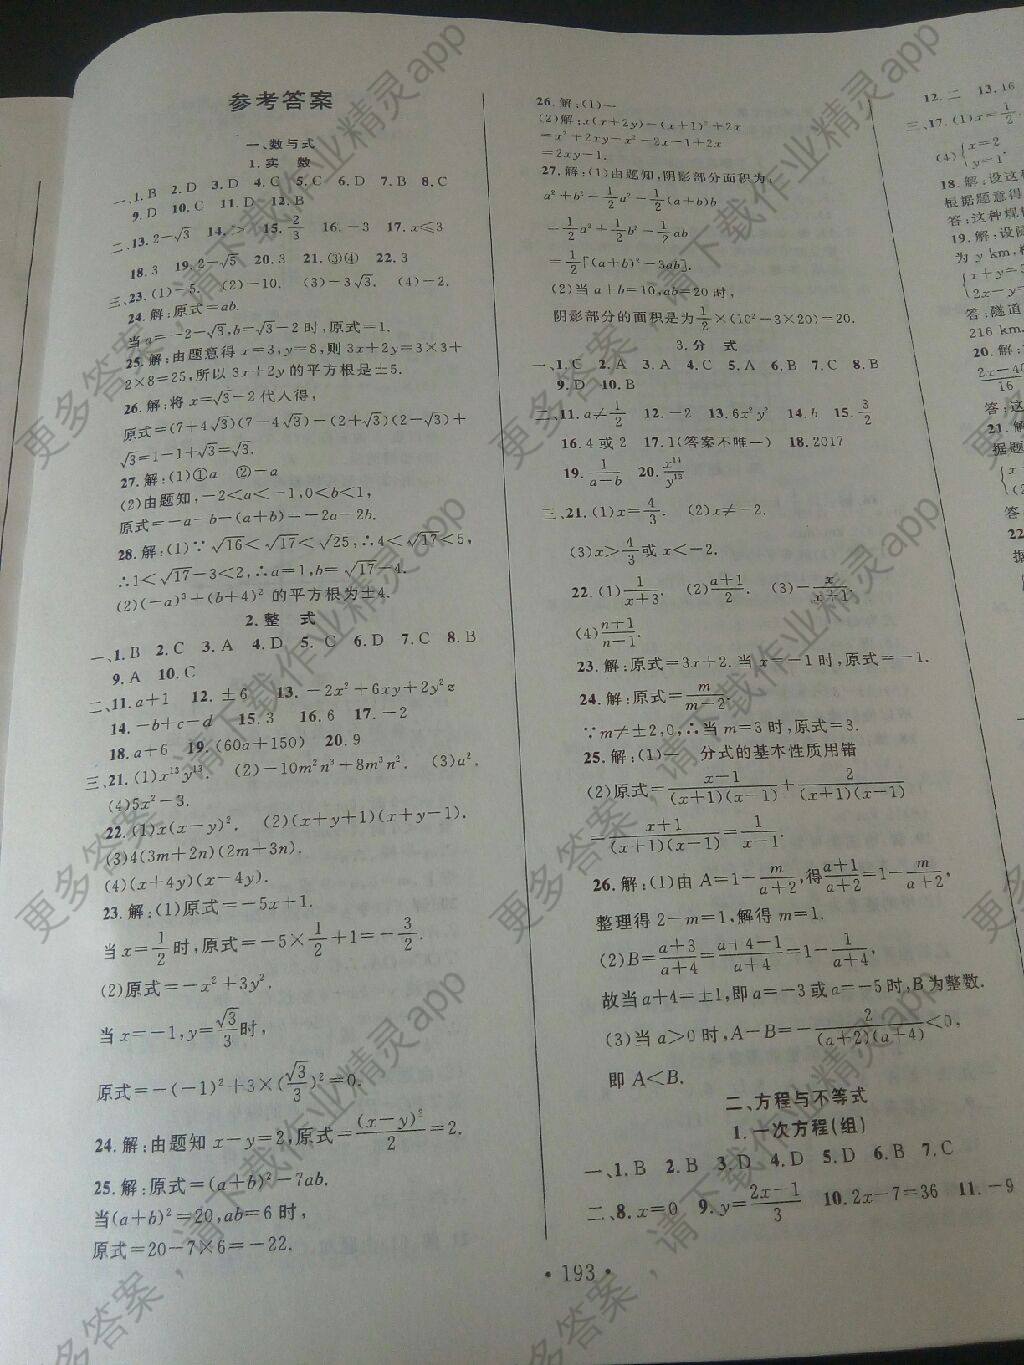 参考答案
一、数与式
1.实 数
一、1.B 2.D 3.D 4.C 5.C 6.D 7.B 8.C
9.D 10.C 11.D 12.B
二、13.2-√3 14.> 15.2/3 16.-3 17.x≤3
18.3 19.2-√5 20.3 21.③④ 22.3
三、23.(1)-5. (2)-10. (3)-3√3. (4)-2.
24.解:原式=ab.
当a=-2-√3,b=√3-2时,原式=1.
25.解:由题意得x=3,y=8,则3x+2y=3×3+
2×8=25,所以3x+2y的平方根是±5.
26.解:将x=√3-2代入得,
原式=(7+4√3)(7-4√3)-(2+√3)(2-√3)+
√3=1-1+√3=√3.
27.解:(1)①a ②-a
(2)由题知,-2<a<-1,0<b<1,
原式=-a-b-(a+b)=-2a-2b.
28.解:(1)∵√16<√17<√25,∴4<√17<5,
∴1<√17-3<2,∴a=1,b=√17-4.
(2)(-a)³+(b+4)²的平方根为±4.
2.整 式
一、1.B 2.C 3.A 4.D 5.C 6.D 7.C 8.B
9.A 10.C
二、11.a+1 12.±6 13.-2x²-6xy+2y²z
14.-b+c-d 15.3 16.6 17.-2
18.a+6 19.(60a+150) 20.9
三、21.(1)x¹³y¹³. (2)-10m²n³+8m³n². (3)a².
(4)5x²-3.
22.(1)x(x-y)². (2)(x+y+1)(x+y-1).
(3)4(3m+2n)(2m+3n).
(4)(x+4y)(x-4y).
23.解:(1)原式=-5x+1.
当x=1/2时,原式=-5×1/2+1=-3/2.
(2)原式=-x²+3y².
当x=-1,y=√3/3时,
原式=-(-1)²+3×(√3/3)²=0.
24.解:由题知x-y=2,原式=(x-y)²/2=2.
25.解:原式=(a+b)²-7ab.
当(a+b)²=20,ab=6时,
原式=20-7×6=-22.
26.解:(1)一
(2)解:x(x+2y)-(x+1)²+2x
=x²+2xy-x²-2x-1+2x
=2xy-1.
27.解:(1)由题知,阴影部分面积为:
a²+b²-1/2a²-1/2(a+b)b
=1/2a²+1/2b²-1/2ab
=1/2[(a+b)²-3ab].
(2)当a+b=10,ab=20时,
阴影部分的面积是为1/2×(10²-3×20)=20.
3.分 式
一、1.C 2.A 3.A 4.C 5.A 6.B 7.C 8.B
9.D 10.B
二、11.a≠1/2 12.-2 13.6x²y² 14. 15.-3/2
16.4或2 17.1(答案不唯一) 18.2017
19.1/(a-b) 20.x¹⁴/y¹³
三、21.(1)x=4/3. (2)x≠-2.
(3)x>4/3或x<-2.
22.(1)1/(x+3). (2)(a+1)/2. (3)-x/(x+1).
(4)(n+1)/(n-1).
23.解:原式=3x+2.当x=-1时,原式=-1.
24.解:原式=m/(m-2).
∵m≠±2,0,∴当m=3时,原式=3.
25.解:(1)一 分式的基本性质用错
(2)原式=(x-1)/((x+1)(x-1))+2/((x+1)(x-1))
=(x+1)/((x+1)(x-1))=1/(x-1).
26.解:(1)由A=1-m/(a+2),得(a+1)/(a+2)=1-m/(a+2),
整理得2-m=1,解得m=1.
(2)B=(a+3)/(a+4)=(a+4-1)/(a+4)=1-1/(a+4),
故当a+4=±1,即a=-3或a=-5时,B为整数.
(3)当a>0时,A-B=-2/((a+2)(a+4))<0,
即A<B.
二、方程与不等式
1.一次方程(组)
一、1.B 2.B 3.D 4.D 5.D 6.B 7.C
二、8.x=0 9.y=(2x-1)/3 10.2x-7=36 11.-9
·193·
12.二 13.16
三、17.(1)x=1/2.
(4){x=2
y=1.
18.解:设这
根据题意得
答:这种规
19.解:设
为y km,
{x+y=
2x-y=
答:隧道
216 km.
20.解:
2x-40
16
答:这
21.解
据题
{x
答
22
更多答案,请下载作业精灵app